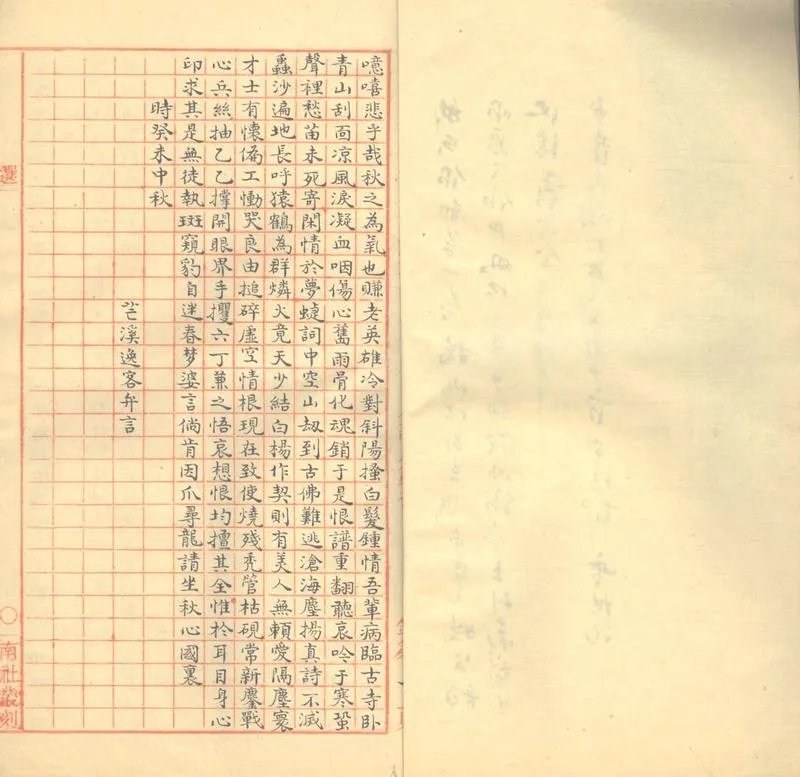 噫嘻悲乎哉秋之為氣也賺老英雄冷對斜陽搔白髮鍾情吾輩病臨古寺臥
青山刮面涼風淚凝血咽傷心舊雨骨化魂銷于是恨譜重翻聽哀吟于寒蛩
聲裡愁苗未死寄閑情於夢蜨詞中空山劫到古佛難逃滄海塵揚真詩不滅
蟲沙遍地長呼猿鶴為群燐火竟天少結白楊作契則有美人無賴愛隔塵寰
才士有懷偏工慟哭良由搥碎虛空情根現在致使燒殘禿管枯硯常新鏖戰
心兵絲抽乙乙撐開眼界手攫六丁兼之悟哀想恨均擅其全惟於耳目身心
印求其是無徒執斑窺豹自迷春梦婆言倘肯因爪尋龍請坐秋心國裏
時癸未中秋
芒溪逸客弁言
選
〇
南社叢刻